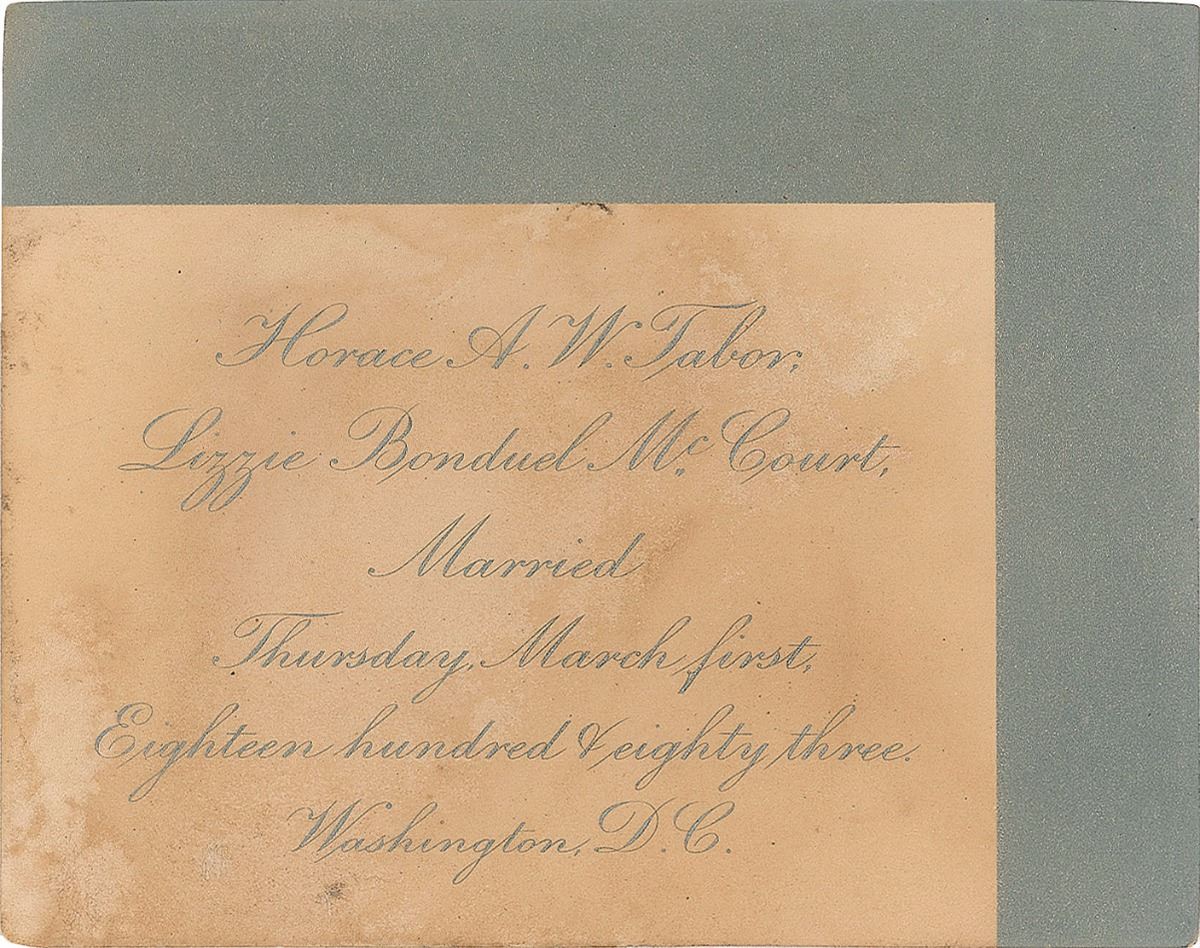 Horace A. W. Tabor,
Lizzie Bonduel Mc. Court,
Married
Thursday, March first,
Eighteen hundred & eighty three.
Washington, D. C.